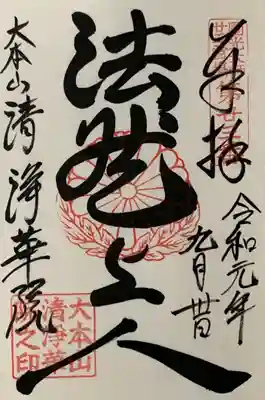 奉拝
令和元年
九月廿日
法然上人
大本山清浄華院
大本山
清浄華
院之印